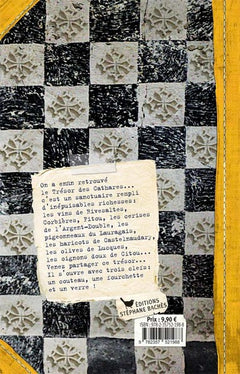 On a enfin retrouvé
le Trésor des Cathares...
c'est un sanctuaire rempli
d'inépuisables richesses :
les vins de Rivesaltes,
Corbières, Fitou, les cerises
de l'Argent-Double, les
pigeonneaux du Lauragais,
les haricots de Castelnaudary,
les olives de Lucques,
les oignons doux de Citou...
Venez partager ce trésor...
Il s'ouvre avec trois clefs :
un couteau, une fourchette
et un verre !
ÉDITIONS
STÉPHANE BACHÈS
Prix : 9,90 €
ISBN : 978-2-35752-198-8
9 782357 521988